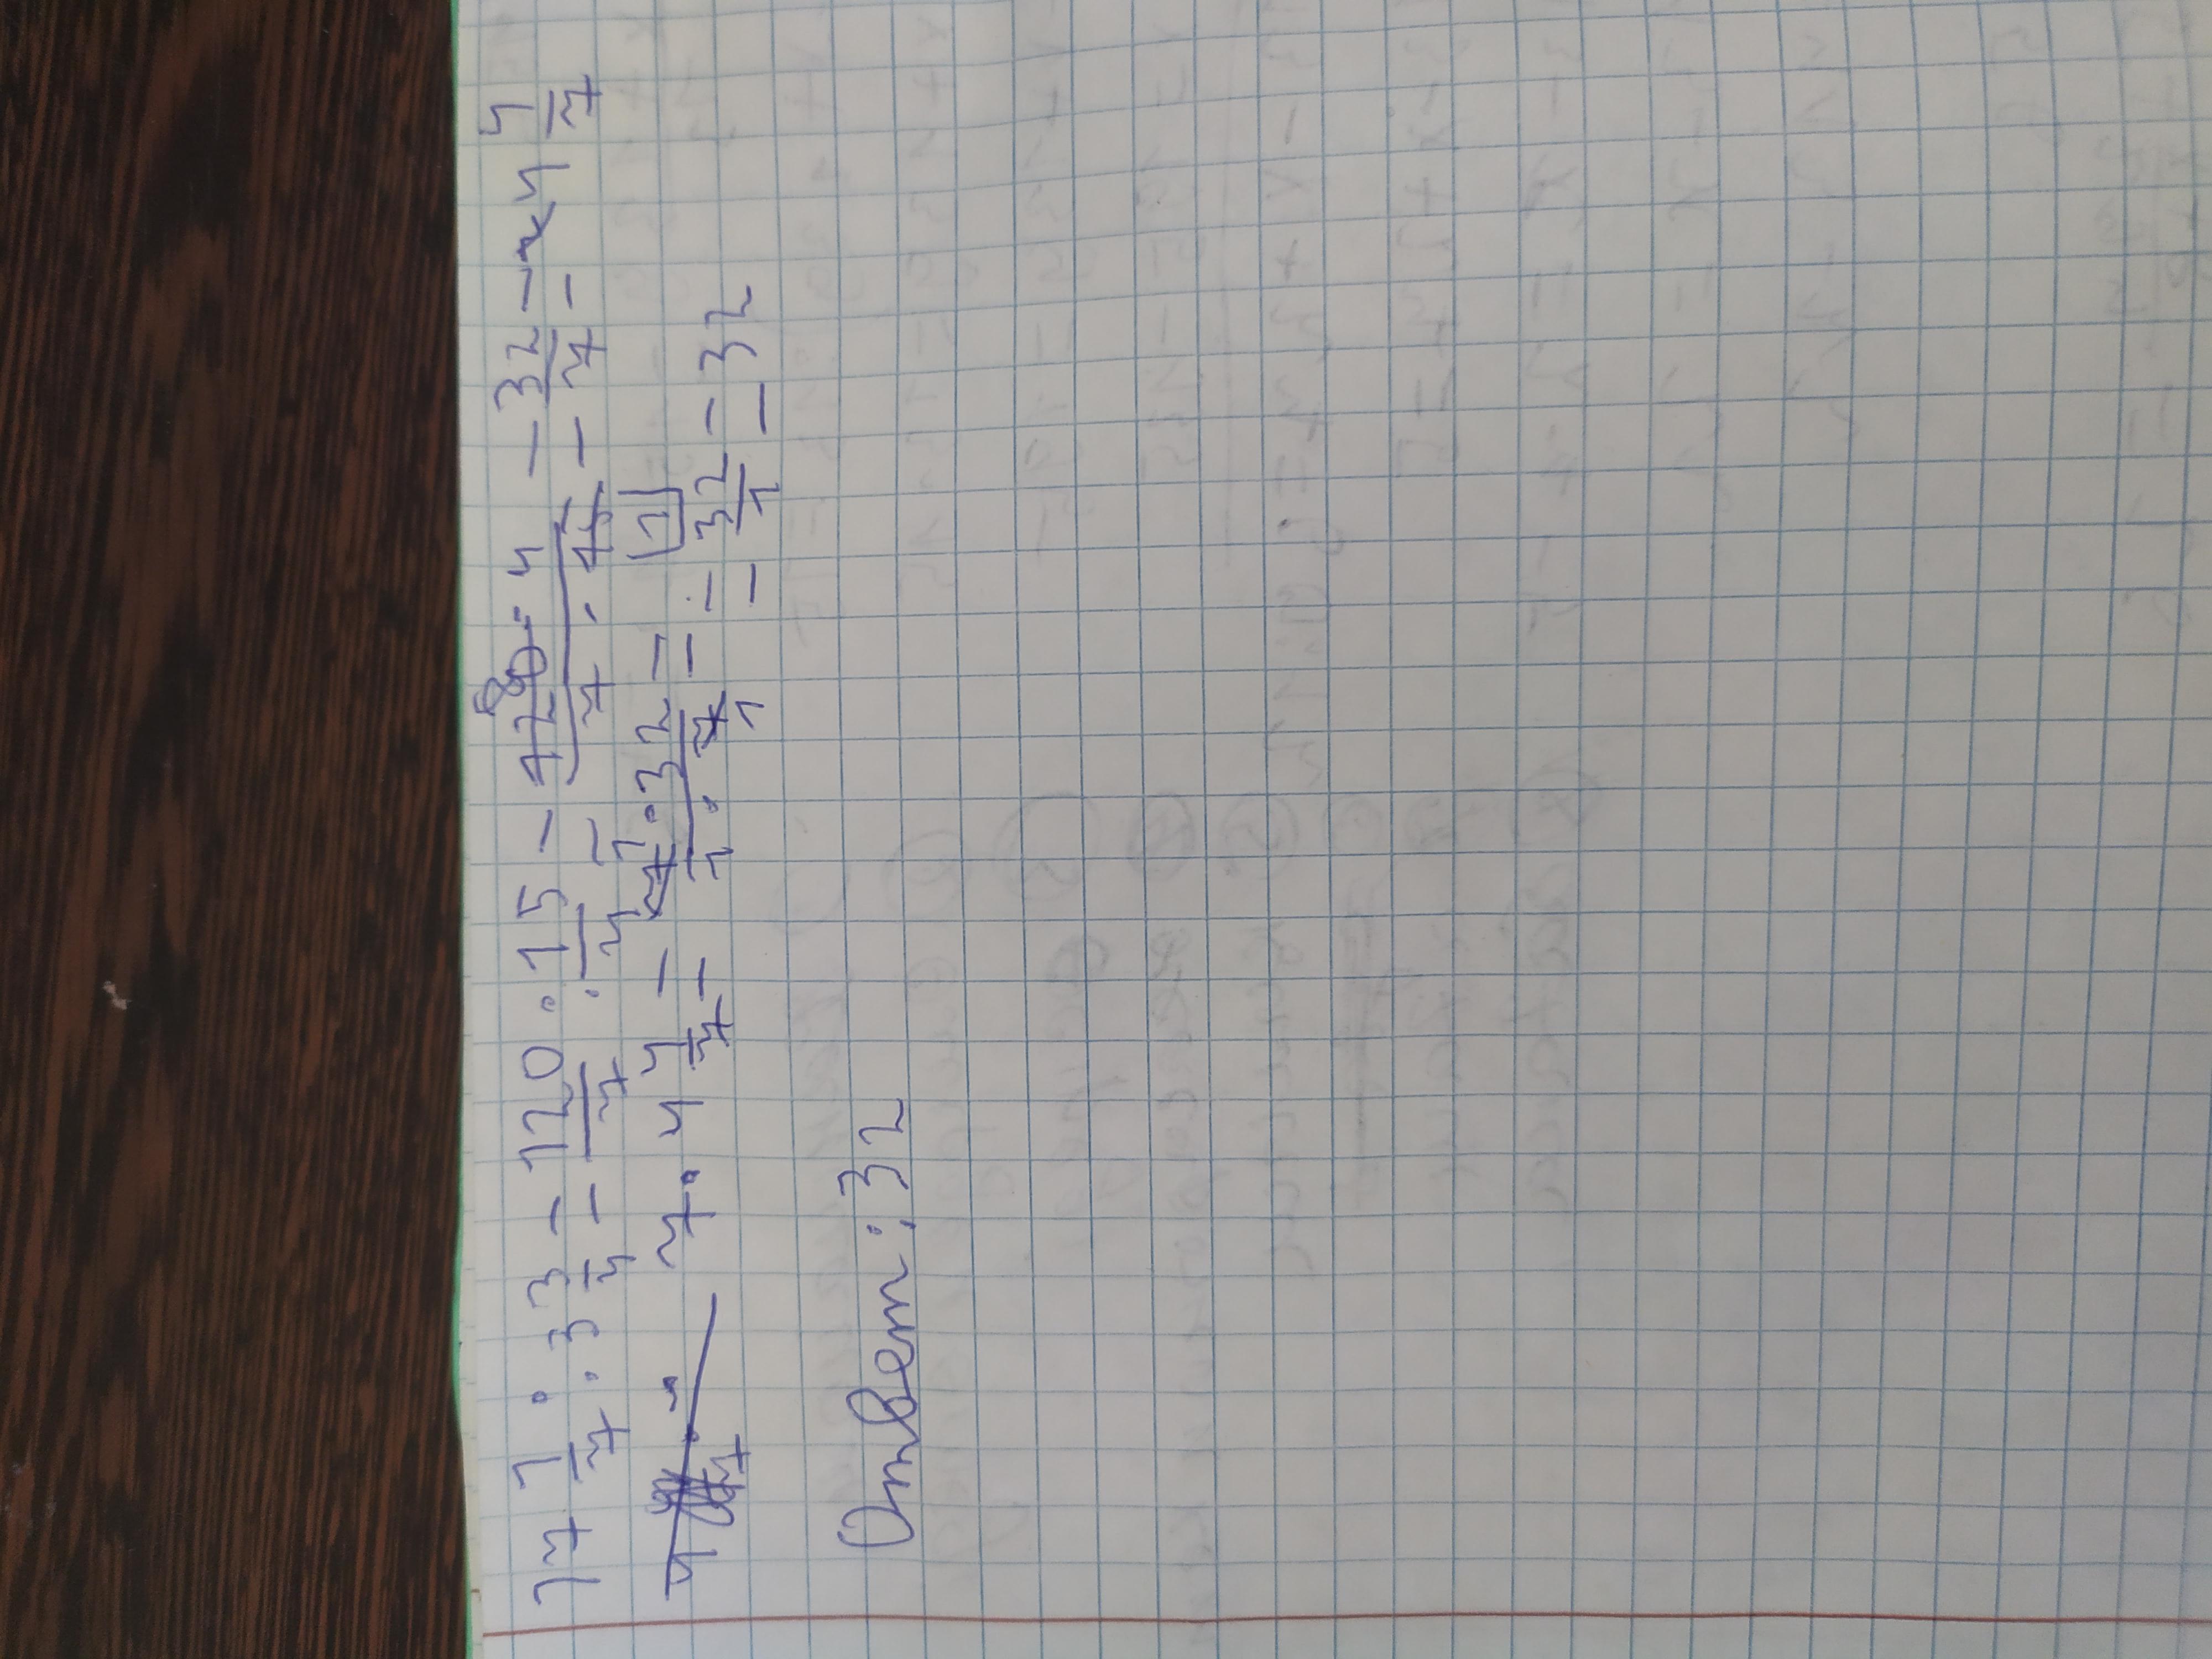 17 1/7 : 3 3/4 = 120/7 : 15/4 = 120·4/7·15 = 32/7 = 4 4/7
7 · 4 4/7 = 7·32/1·7 = 32/1 = 32
Ответ: 32